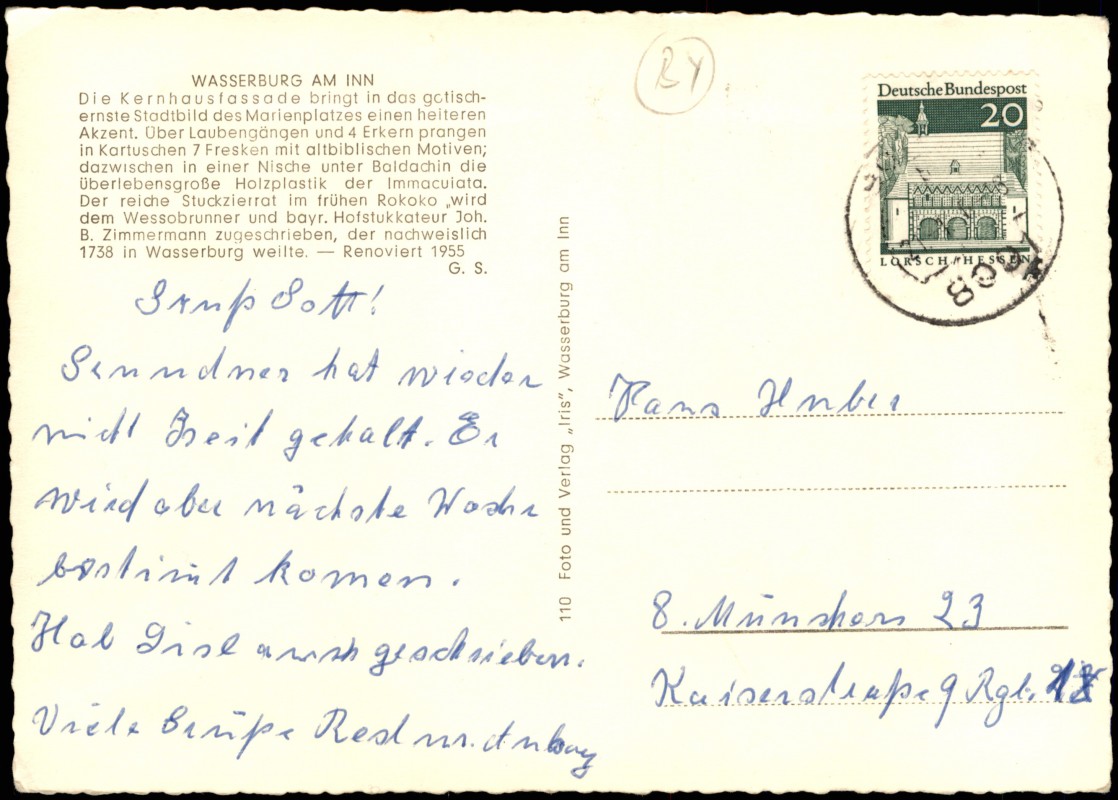 WASSERBURG AM INN
Die Kernhausfassade bringt in das gotisch-
ernste Stadtbild des Marienplatzes einen heiteren
Akzent. Über Laubengängen und 4 Erkern prangen
in Kartuschen 7 Fresken mit altbiblischen Motiven;
dazwischen in einer Nische unter Baldachin die
überlebensgroße Holzplastik der Immaculata.
Der reiche Stuckzierrat im frühen Rokoko „wird
dem Wessobrunner und bayr. Hofstukkateur Joh.
B. Zimmermann zugeschrieben, der nachweislich
1738 in Wasserburg weilte. — Renoviert 1955
G. S.
Grüß Gott!
hat wieder
nicht Zeit gehabt. Er
wird aber nächste Woche
bestimt komen.
Hab auch geschrieben.
Viele Grüße
110 Foto und Verlag „Iris", Wasserburg am Inn
BY
Deutsche Bundespost
20
LORSCH/HESSEN
Hans Huber
8. München 23
Kaiserstraße 9 Rgb.